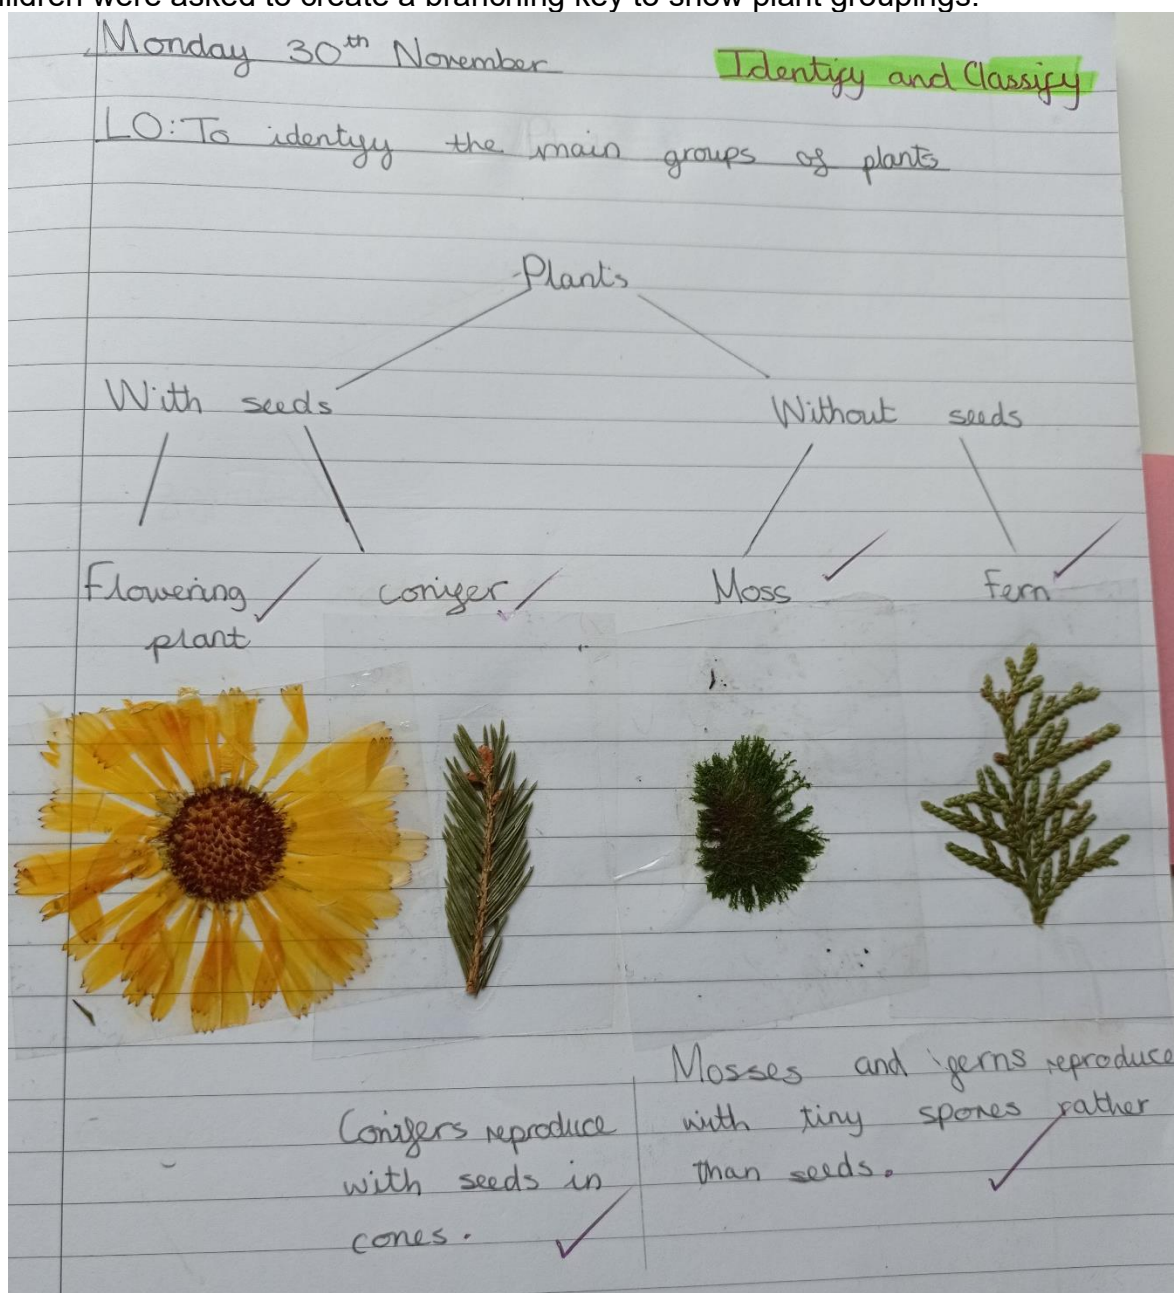 children were asked to create a branching key to show plant groupings.
Monday 30th November
Identify and Classify
LO: To identify the main groups of plants
Plants
With seeds
Without seeds
Flowering plant
conifer
Moss
Fern
Conifers reproduce
with seeds in
cones.
Mosses and ferns reproduce
with tiny spores rather
than seeds.